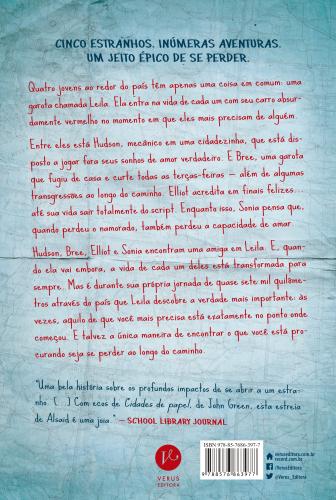 CINCO ESTRANHOS. INÚMERAS AVENTURAS.
UM JEITO ÉPICO DE SE PERDER.
Quatro jovens ao redor do país têm apenas uma coisa em comum: uma
garota chamada Leila. Ela entra na vida de cada um com seu carro absur-
damente vermelho no momento em que eles mais precisam de alguém.
Entre eles está Hudson, mecânico em uma cidadezinha, que está dis-
posto a jogar fora seus sonhos de amor verdadeiro. E Bree, uma garota
que fugiu de casa e curte todas as terças-feiras – além de algumas
transgressões ao longo do caminho. Elliot acredita em finais felizes...
até sua vida sair totalmente do script. Enquanto isso, Sonia pensa que,
quando perdeu o namorado, também perdeu a capacidade de amar.
Hudson, Bree, Elliot e Sonia encontram uma amiga em Leila. E, quan-
do ela vai embora, a vida de cada um deles está transformada para
sempre. Mas é durante sua própria jornada de quase sete mil quilôme-
tros através do país que Leila descobre a verdade mais importante: às
vezes, aquilo de que você mais precisa está exatamente no ponto onde
começou. E talvez a única maneira de encontrar o que você está pro-
curando seja se perder ao longo do caminho.
"Uma bela história sobre os profundos impactos de se abrir a um estra-
nho. (...) Com ecos de Cidades de papel, de John Green, esta estreia
de Alsaid é uma joia." – SCHOOL LIBRARY JOURNAL
VERUS
EDITORA
ISBN 978-85-7686-397-7
9 788576 863977
veruseditora.com.br
record.com.br
/VerusEditora
@Verus_Editora